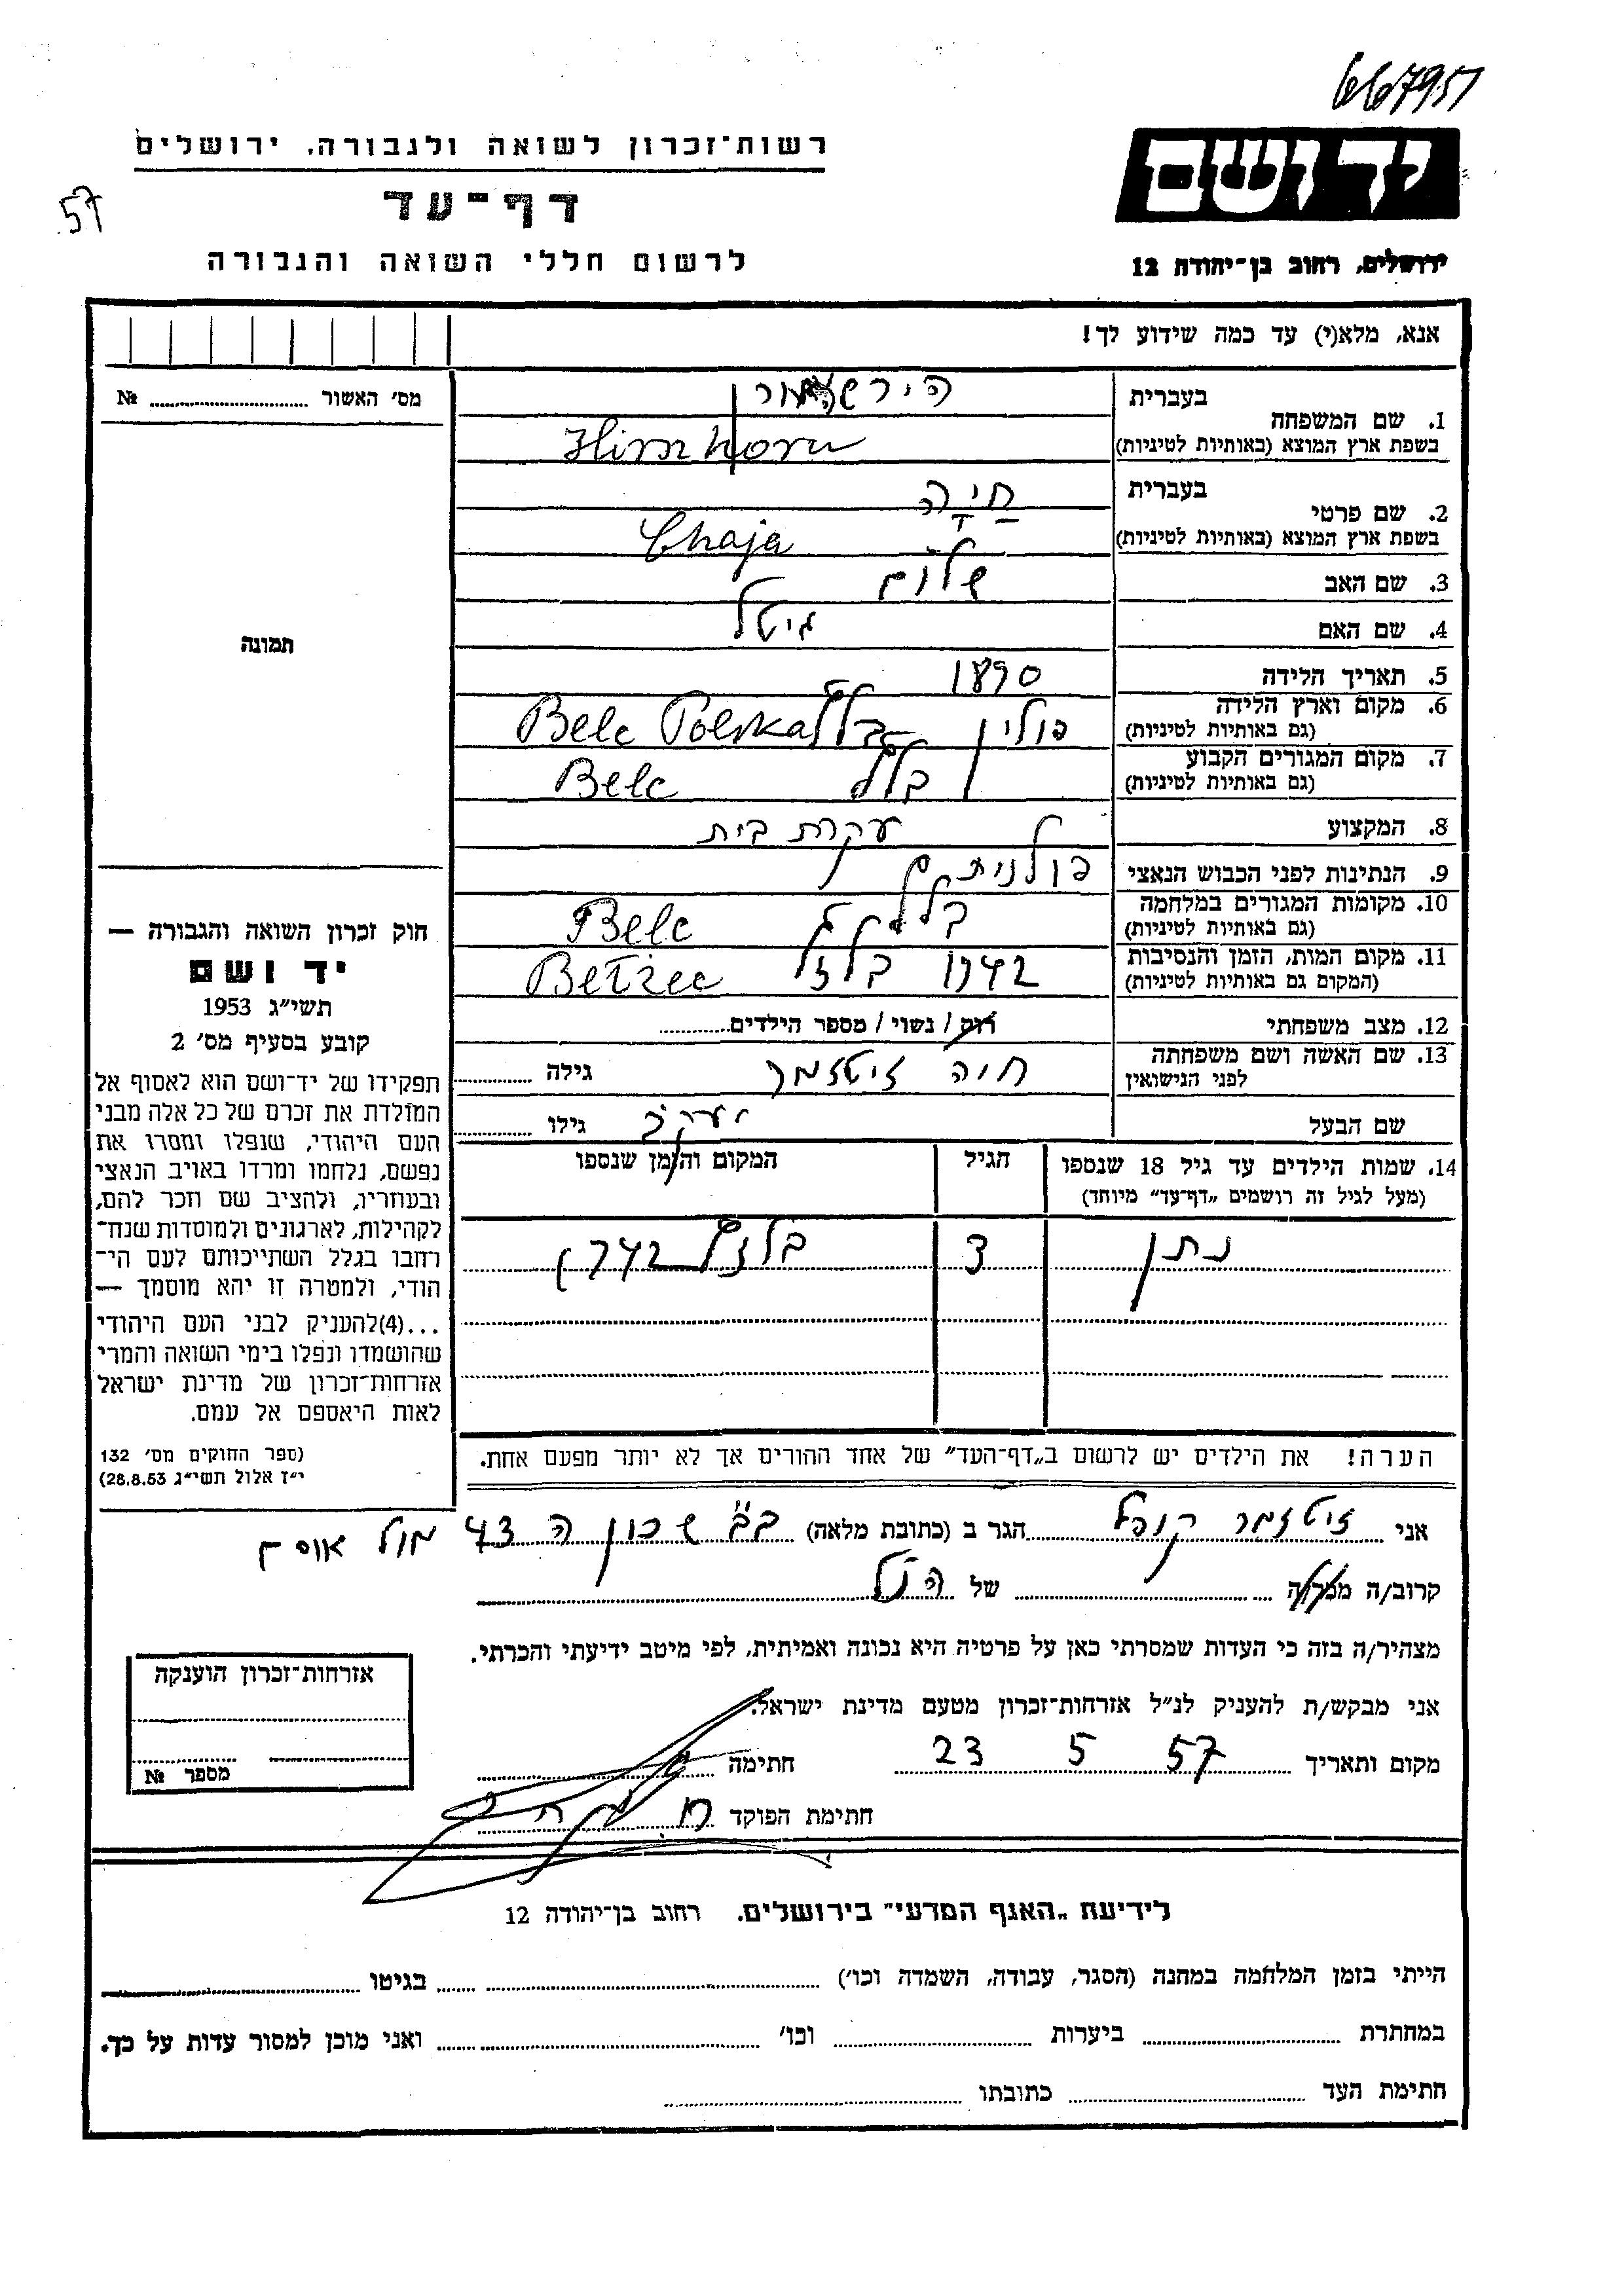 667951
רשות־זכרון לשואה ולגבורה, ירושלים
יד ושם
דף־עד
57
לרשום חללי השואה והגבורה
ירושלים, רחוב בן־יהודה 12
אנא, מלא(י) עד כמה שידוע לך!
מס׳ האשור № 
1. שם המשפחה בעברית הירשהורן
בשפת ארץ המוצא (באותיות לטיניות) Hirszhorn
2. שם פרטי בעברית חיה
בשפת ארץ המוצא (באותיות לטיניות) Chaja
3. שם האב שלום
4. שם האם גיטל
תמונה
5. תאריך הלידה 1890
6. מקום וארץ הלידה (גם באותיות לטיניות) פולין בלז Belc Polska
7. מקום המגורים הקבוע (גם באותיות לטיניות) Belc
8. המקצוע עקרת בית
9. הנתינות לפני הכבוש הנאצי פולנית
10. מקומות המגורים במלחמה (גם באותיות לטיניות) Belc
11. מקום המות, הזמן והנסיבות (המקום גם באותיות לטיניות) 1942 Betżec
12. מצב משפחתי רוק / נשוי / מספר הילדים
13. שם האשה ושם משפחתה לפני הנישואין חיה זיטזמר גילה
שם הבעל יעקב גילו
14. שמות הילדים עד גיל 18 שנספו (מעל לגיל זה רושמים „דף־עד״ מיוחד) הגיל המקום והזמן שנספו
נתן 3 1942
חוק זכרון השואה והגבורה —
יד ושם
תשי״ג 1953
קובע בסעיף מס׳ 2
תפקידו של יד־ושם הוא לאסוף אל
המולדת את זכרם של כל אלה מבני
העם היהודי, שנפלו ומסרו את
נפשם, נלחמו ומרדו באויב הנאצי
ובעוזריו, ולהציב שם וזכר להם,
לקהילות, לארגונים ולמוסדות שנח־
רחבו בגלל השתייכותם לעם הי־
הודי, ולמטרה זו יהא מוסמך —
...(4)להעניק לבני העם היהודי
שהושמדו ונפלו בימי השואה והמרי
אזרחות־זכרון של מדינת ישראל
לאות היאספם אל עמם.
(ספר החוקים מס׳ 132
י״ז אלול תשי״ג 28.8.53)
הערה! את הילדים יש לרשום ב„דף־העד״ של אחד ההורים אך לא יותר מפעם אחת.
אני זיטזמר קופל הגר ב (כתובת מלאה) ב״ב שכון ה 43 מול אוסם
קרוב/ה מכר/ה של הנ״ל
מצהיר/ה בזה כי העדות שמסרתי כאן על פרטיה היא נכונה ואמיתית, לפי מיטב ידיעתי והכרתי.
אני מבקש/ת להעניק לנ״ל אזרחות־זכרון מטעם מדינת ישראל.
מקום ותאריך 57 5 23 חתימה
חתימת הפוקד
אזרחות־זכרון הוענקה
מספר №
לידיעת „האגף המדעי״ בירושלים. רחוב בן־יהודה 12
הייתי בזמן המלחמה במחנה (הסגר, עבודה, השמדה וכו׳) בגיטו
במחתרת ביערות וכו׳ ואני מוכן למסור עדות על כך.
חתימת העד כתובתו